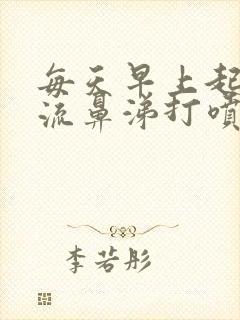 每天早上起
流鼻涕打噴
李若彤